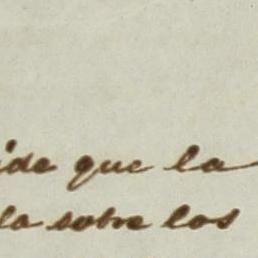 ide que la
la sobre los